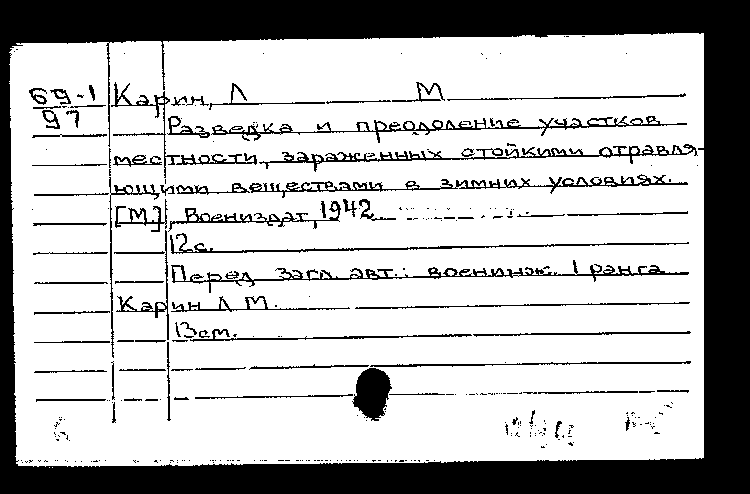 69-1
97
Карин, Л М
Разведка и преодоление участков
местности, зараженных стойкими отравля-
ющими веществами в зимних условиях.
[М], Воениздат, 1942.
12с.
Перед загл. авт.: военинж. 1 ранга
Карин Л М.
13см.